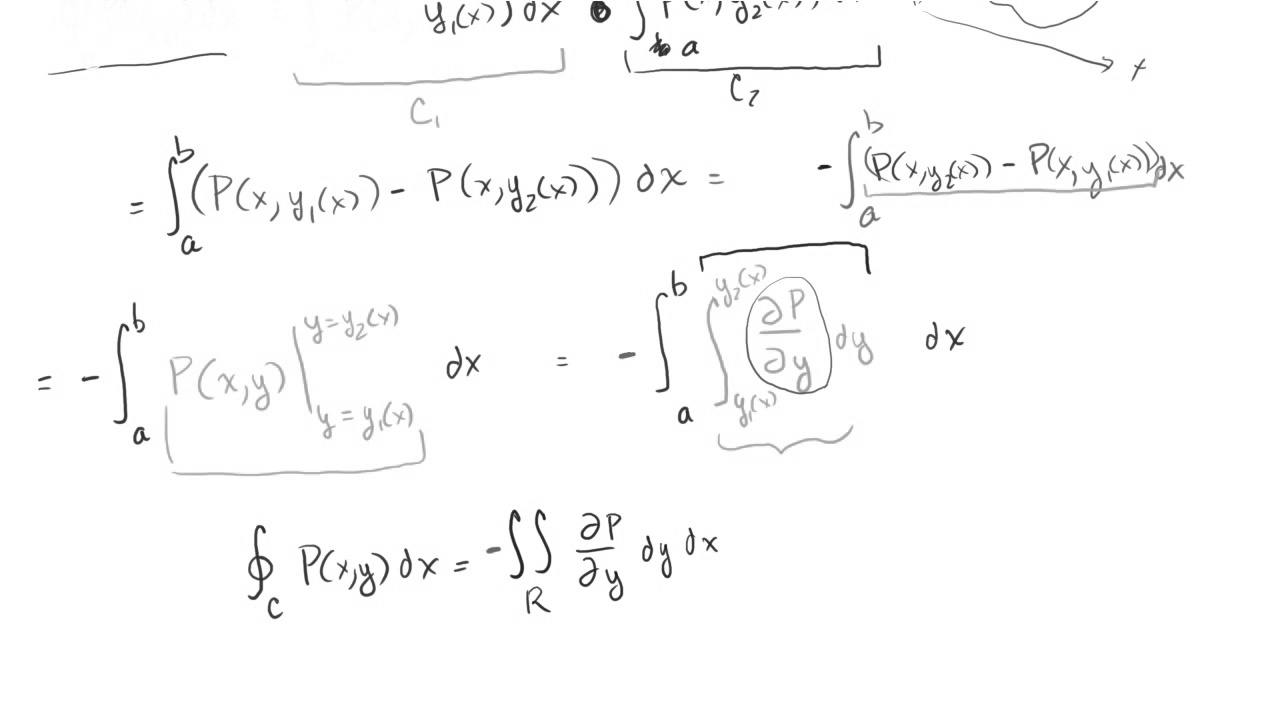 y₁(x)) dx ∫ₐ P(x, y₂(x))
C₁ C₂ x
= ∫ₐᵇ (P(x, y₁(x)) - P(x, y₂(x))) dx = - ∫ₐᵇ (P(x, y₂(x)) - P(x, y₁(x))) dx
= - ∫ₐᵇ P(x,y) |_{y = y₁(x)}^{y = y₂(x)} dx = - ∫ₐᵇ ∫_{y₁(x)}^{y₂(x)} ∂P/∂y dy dx
∮_C P(x,y) dx = - ∬_R ∂P/∂y dy dx